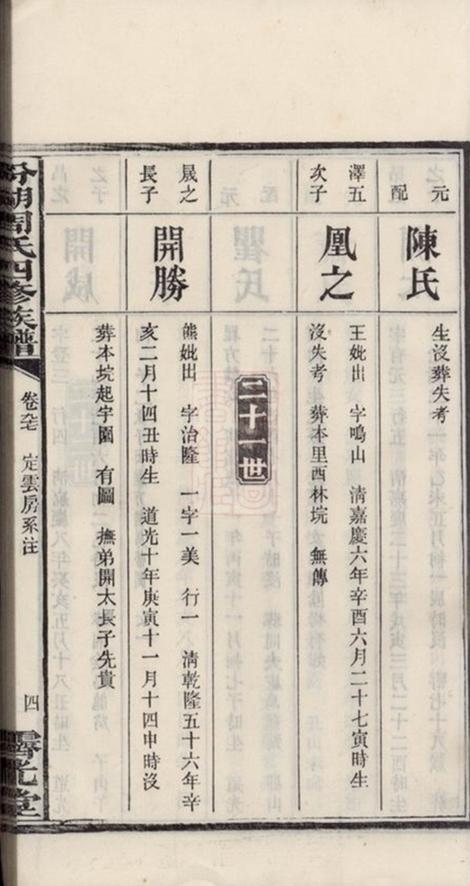 之元
配
陳氏
生沒葬失考
澤五
次子
凰之
王妣出 字鳴山 清嘉慶六年辛酉六月二十七寅時生
沒失考 葬本里西林垸 無傳
二十一世
晟之
長子
開勝
熊妣出 字治隆 一字一美 行一 清乾隆五十六年辛
亥二月十四丑時生 道光十年庚寅十一月十四申時沒
葬本垸起字圖 有圖 撫弟開太長子先貴
湖周氏四修族譜
定雲房系注
四
堂